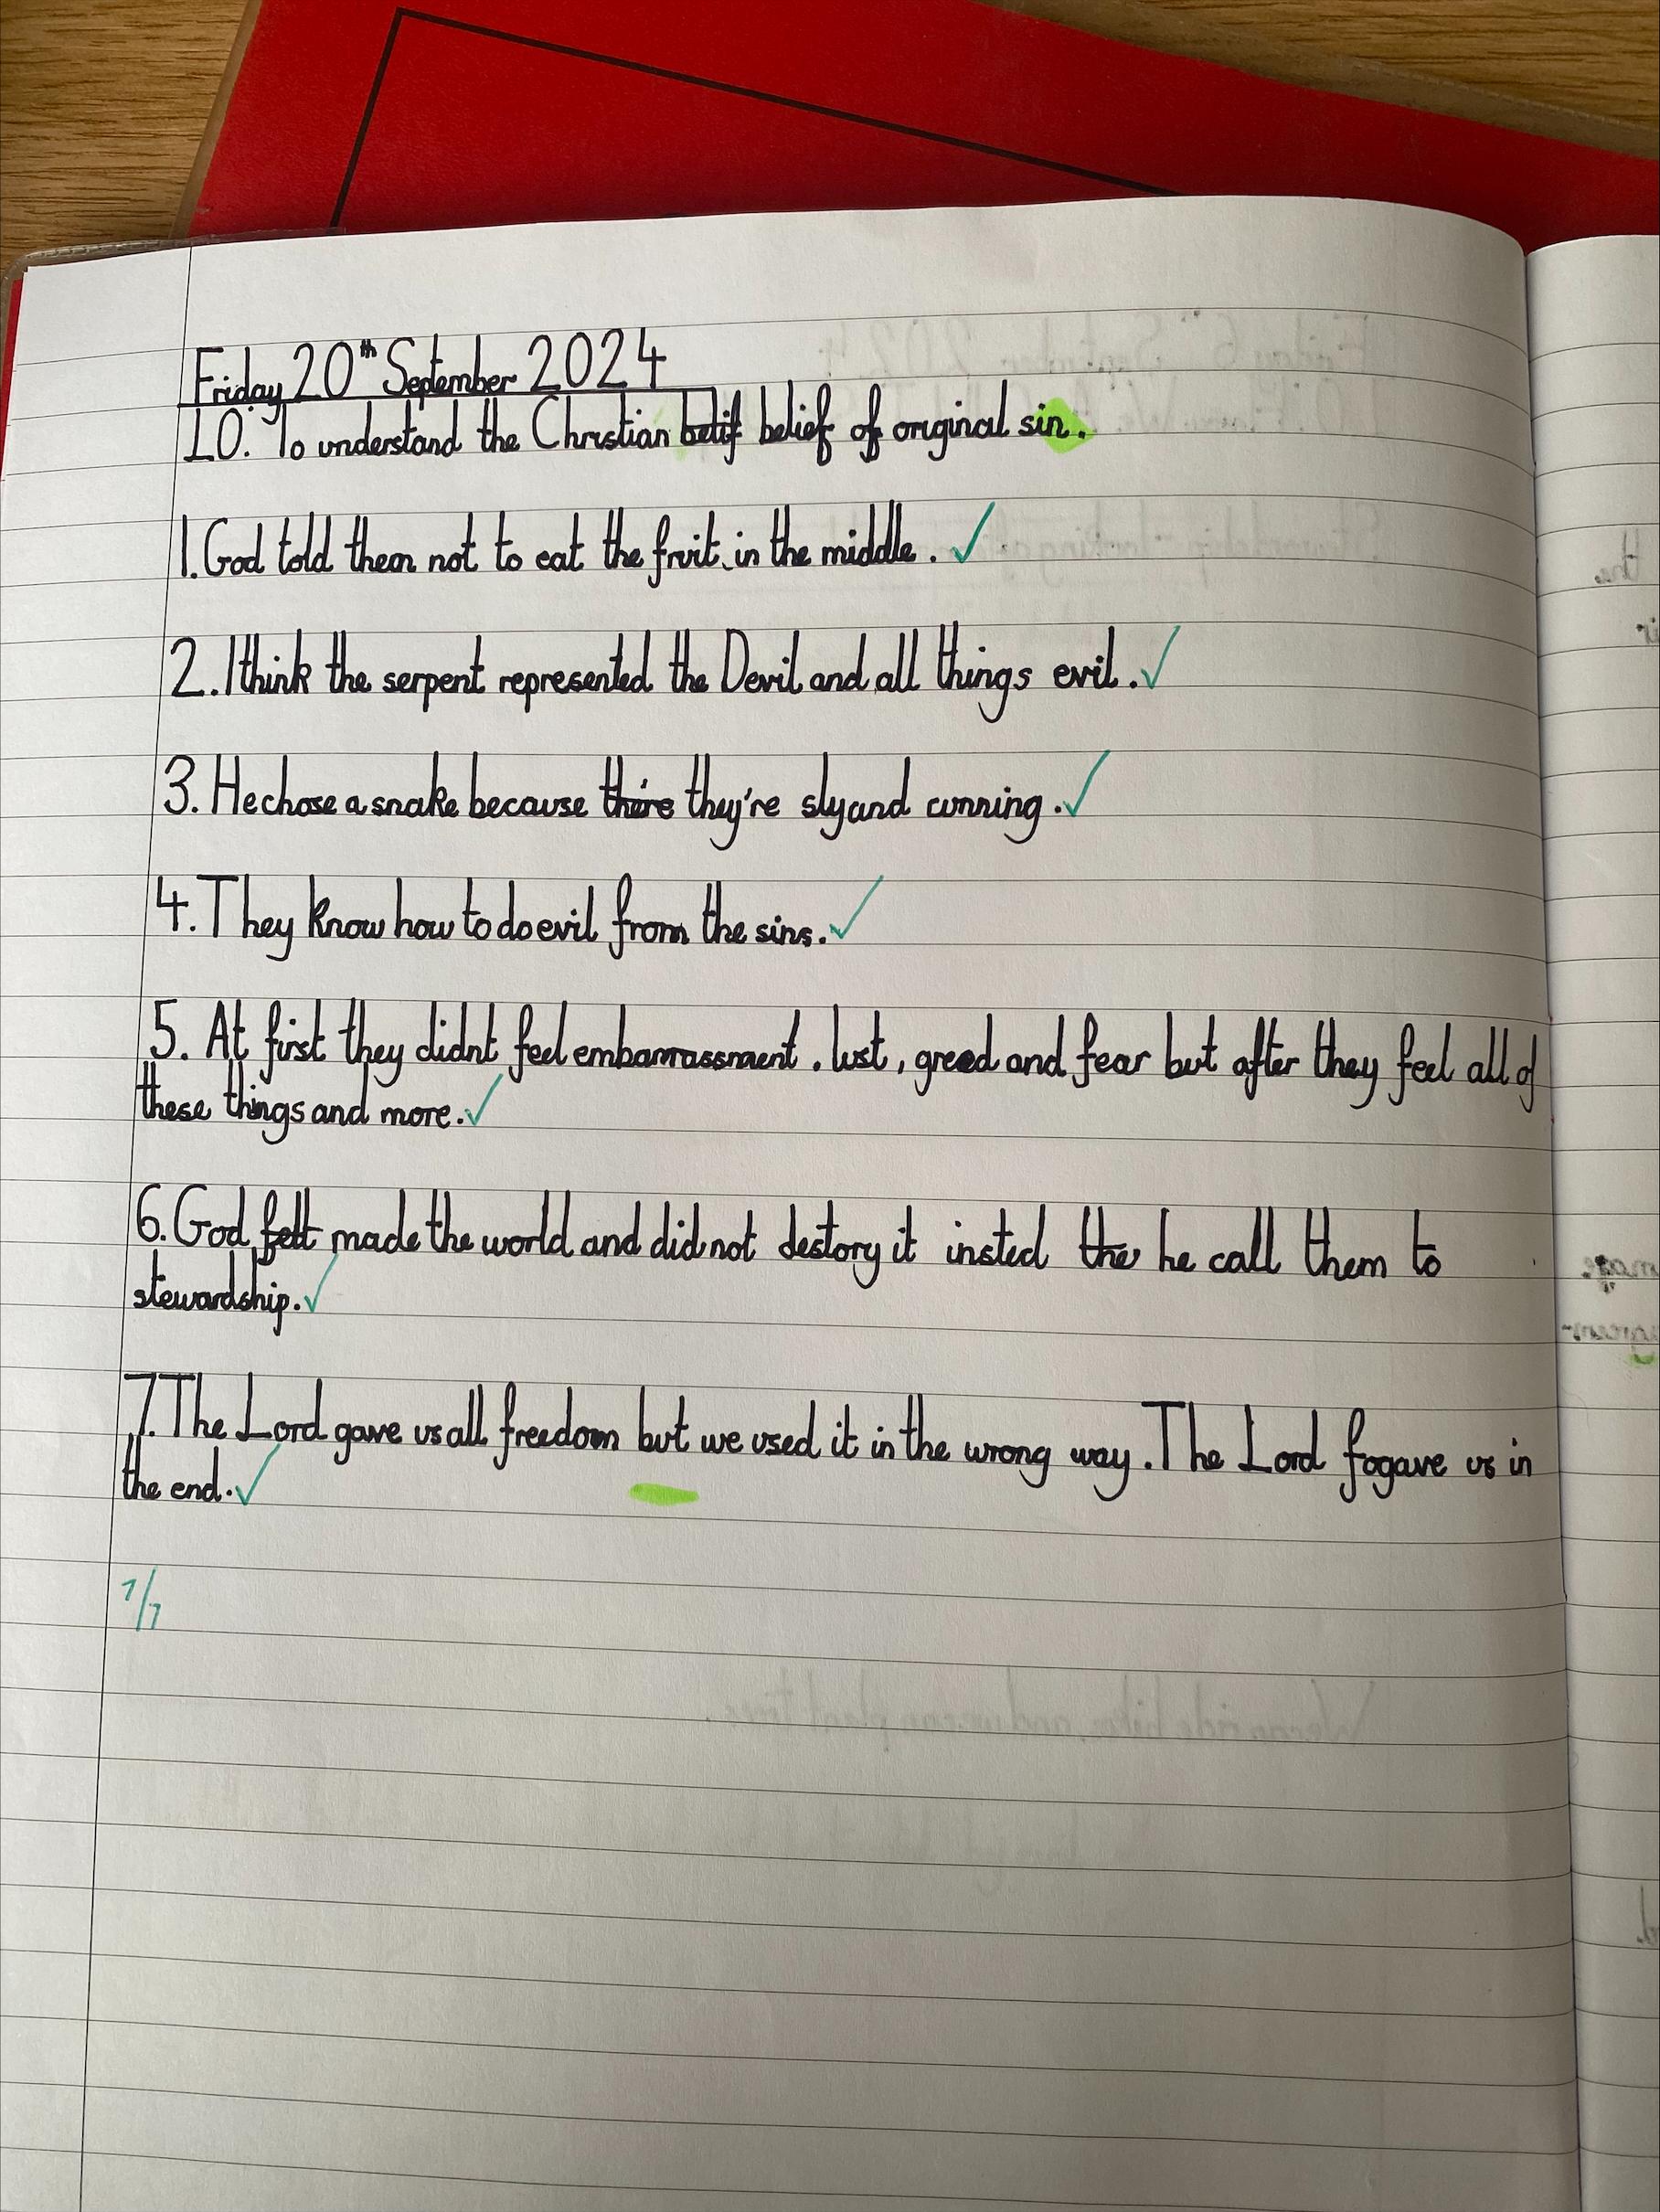 Friday 20th September 2024
LO: To understand the Christian belif belief of original sin.
1. God told them not to eat the fruit in the middle.
2. I think the serpent represented the Devil and all things evil.
3. He chose a snake because there they're sly and cunning.
4. They know how to do evil from the sins.
5. At first they didnt feel embarrassment. lust, greed and fear but after they feel all of
these things and more.
6. God felt made the world and did not destory it insted the he call them to
stewardship.
7. The Lord gave us all freedom but we used it in the wrong way. The Lord fogave us in
the end.
7/7